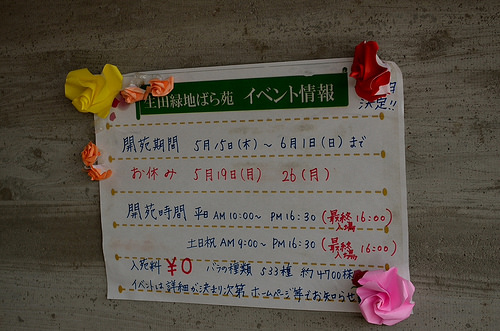 生田緑地ばら苑 イベント情報
決定!!
開苑期間 5月15日(木)～6月1日(日)まで
お休み 5月19日(月) 26(月)
開苑時間 平日AM10:00～PM16:30(最終入場16:00)
土日祝AM9:00～PM16:30(最終入場16:00)
入苑料 ¥0 バラの種類 533種 約4700株
イベントは詳細が決まり次第 ホームページ等でお知らせ